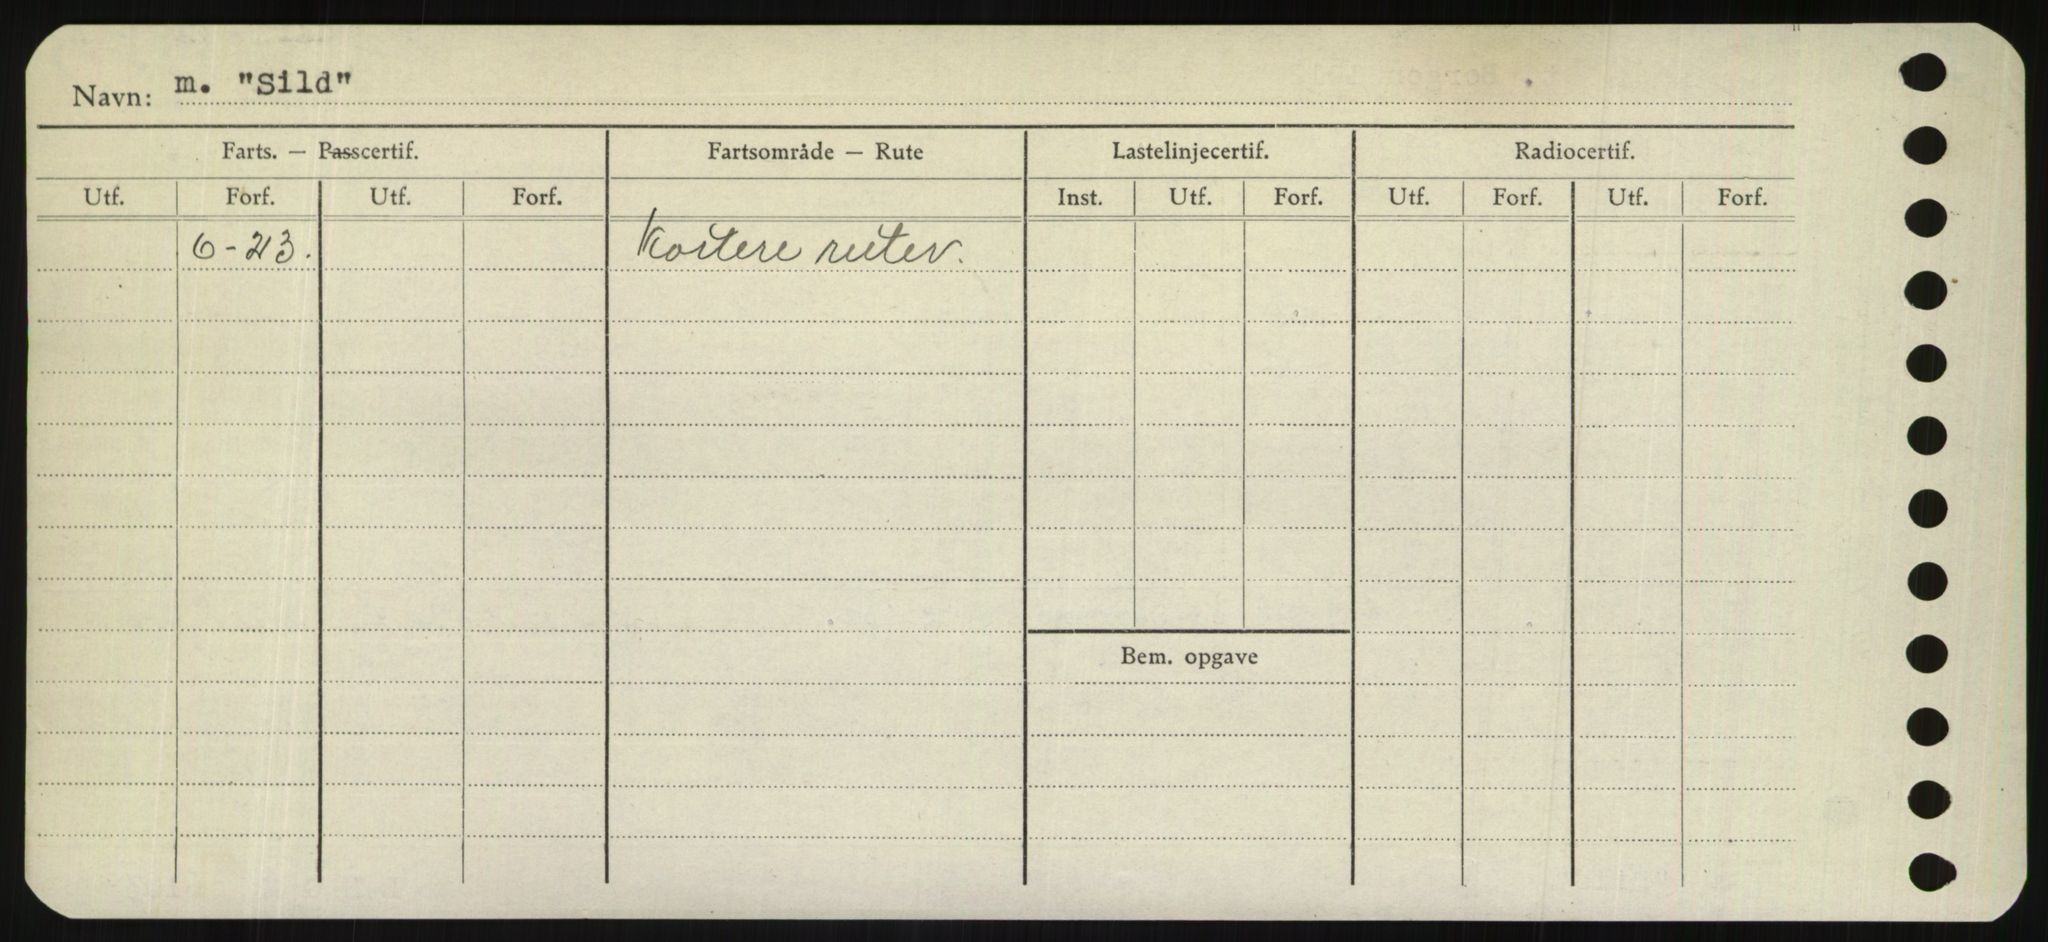 Navn: m. "Sild"
Farts. — Passcertif. Fartsområde — Rute Lastelinjecertif. Radiocertif.
Utf. Forf. Utf. Forf. Inst. Utf. Forf. Utf. Forf. Utf. Forf.
6-23. Kortere ruter.
Bem. opgave